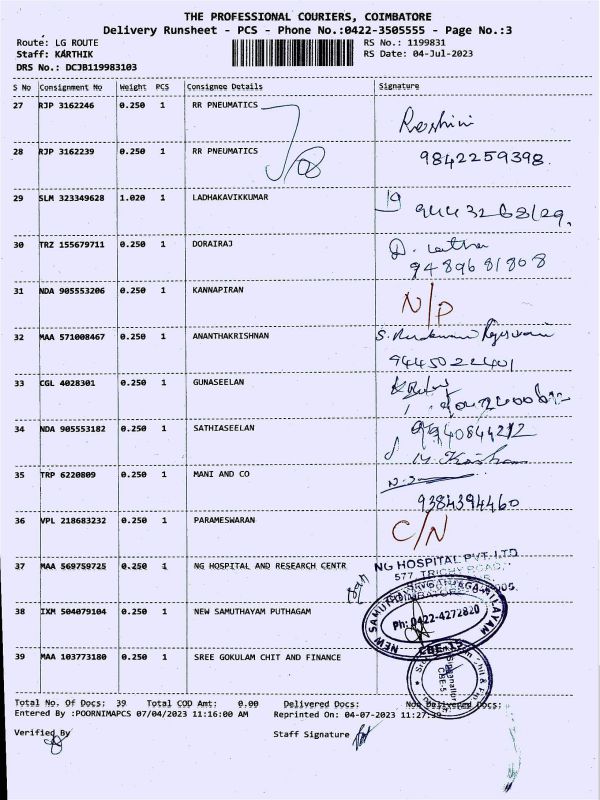 THE PROFESSIONAL COURIERS, COIMBATORE
Delivery Runsheet - PCS - Phone No.:0422-3505555 - Page No.:3
Route: LG ROUTE RS No.: 1199831
Staff: KARTHIK RS Date: 04-Jul-2023
DRS No.: DCJB119983103
S No Consignment No Weight PCS Consignee Details Signature
27 RJP 3162246 0.250 1 RR PNEUMATICS Roshini
28 RJP 3162239 0.250 1 RR PNEUMATICS 9842259398.
29 SLM 323349628 1.020 1 LADHAKAVIKKUMAR
30 TRZ 155679711 0.250 1 DORAIRAJ D. Latha
9489681808
31 NDA 905553206 0.250 1 KANNAPIRAN N/P
32 MAA 571008467 0.250 1 ANANTHAKRISHNAN
9445022401
33 CGL 4028301 0.250 1 GUNASEELAN
34 NDA 905553182 0.250 1 SATHIASEELAN 9940844212
35 TRP 6220809 0.250 1 MANI AND CO
9384394460
36 VPL 218683232 0.250 1 PARAMESWARAN C/N
37 MAA 569759725 0.250 1 NG HOSPITAL AND RESEARCH CENTR NG HOSPITAL PVT.LTD
577 TRICHY ROAD,
38 IXM 504079104 0.250 1 NEW SAMUTHAYAM PUTHAGAM
Ph: 0422-4272820
39 MAA 103773180 0.250 1 SREE GOKULAM CHIT AND FINANCE
CBE-5
Total No. Of Docs: 39 Total COD Amt: 0.00 Delivered Docs: Non Delivered Docs:
Entered By :POORNIMAPCS 07/04/2023 11:16:00 AM Reprinted On: 04-07-2023 11:27:39
Verified By Staff Signature